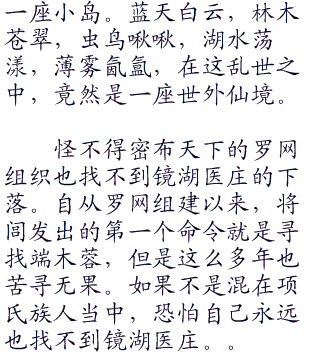 一座小岛。蓝天白云，林木
苍翠，虫鸟啾啾，湖水荡
漾，薄雾氤氲，在这乱世之
中，竟然是一座世外仙境。
怪不得密布天下的罗网
组织也找不到镜湖医庄的下
落。自从罗网组建以来，将
闾发出的第一个命令就是寻
找端木蓉，但是这么多年也
苦寻无果。如果不是混在项
氏族人当中，恐怕自己永远
也找不到镜湖医庄。。